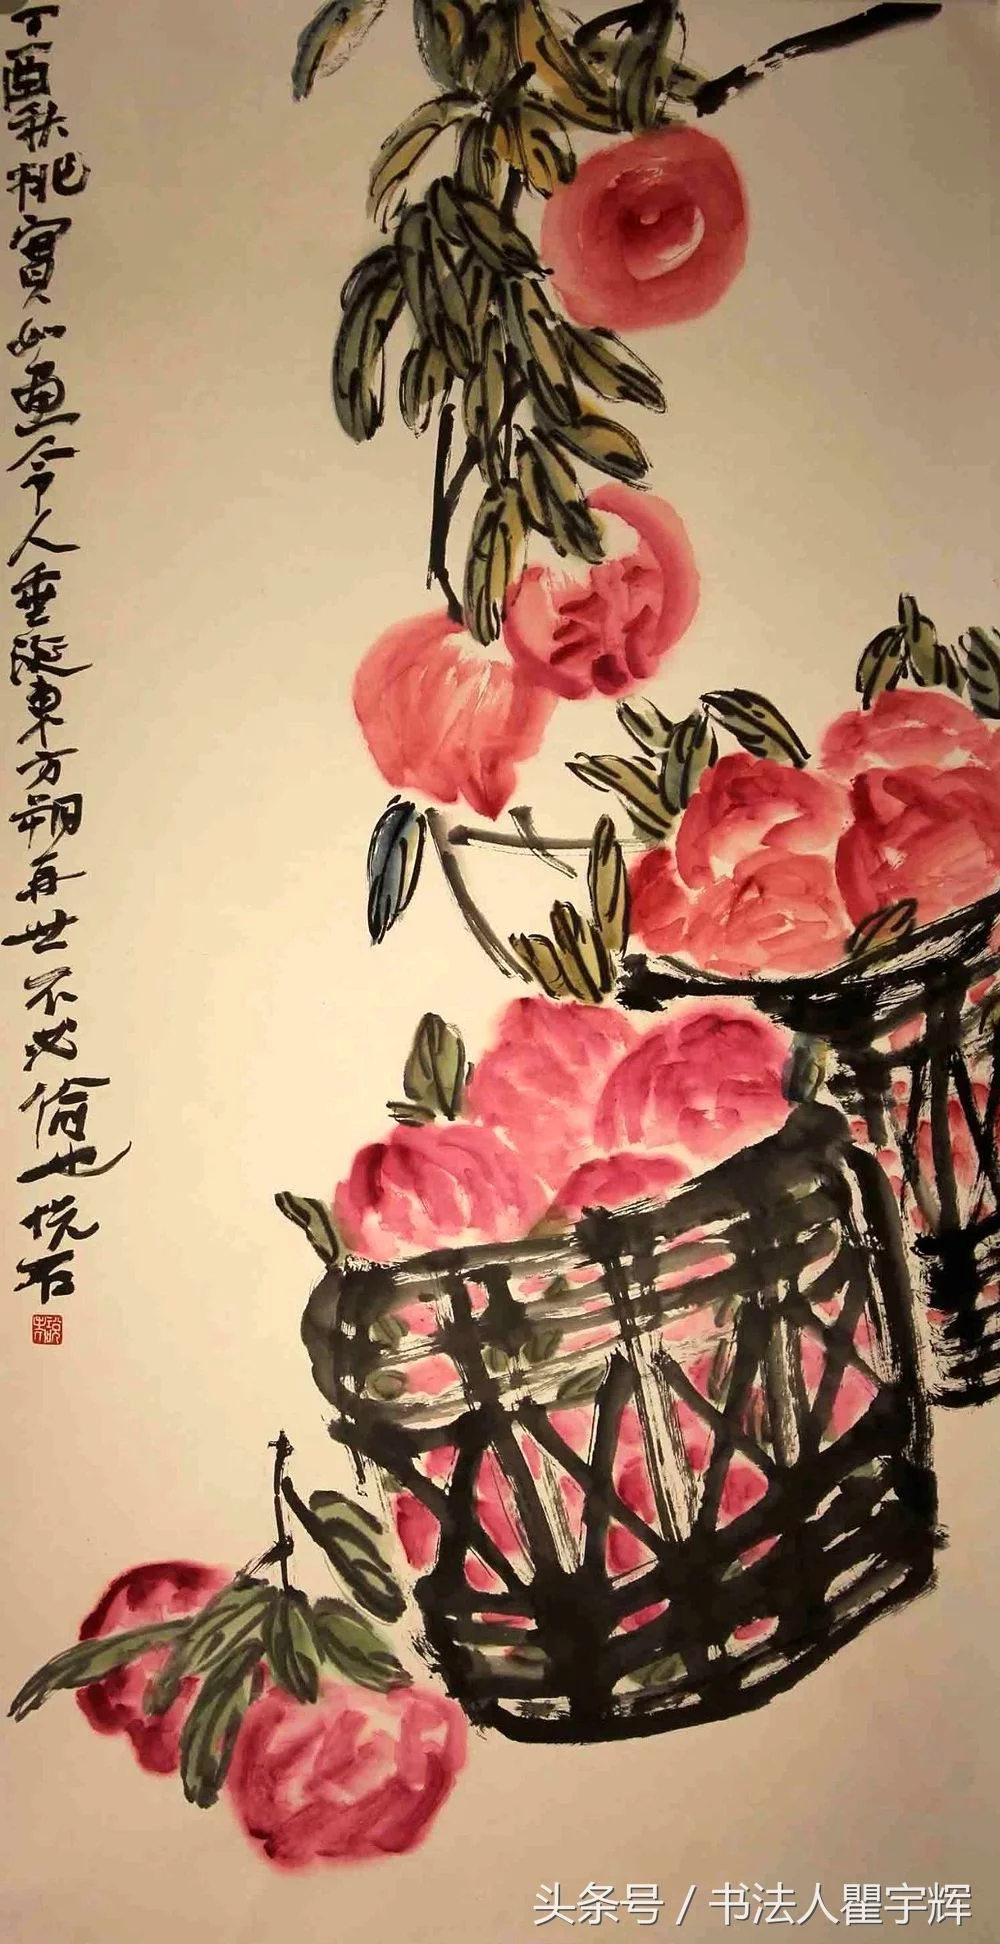 丁酉秋桃實如画令人垂涎東方朔再世不必偷也悦石
头条号 / 书法人瞿宇辉